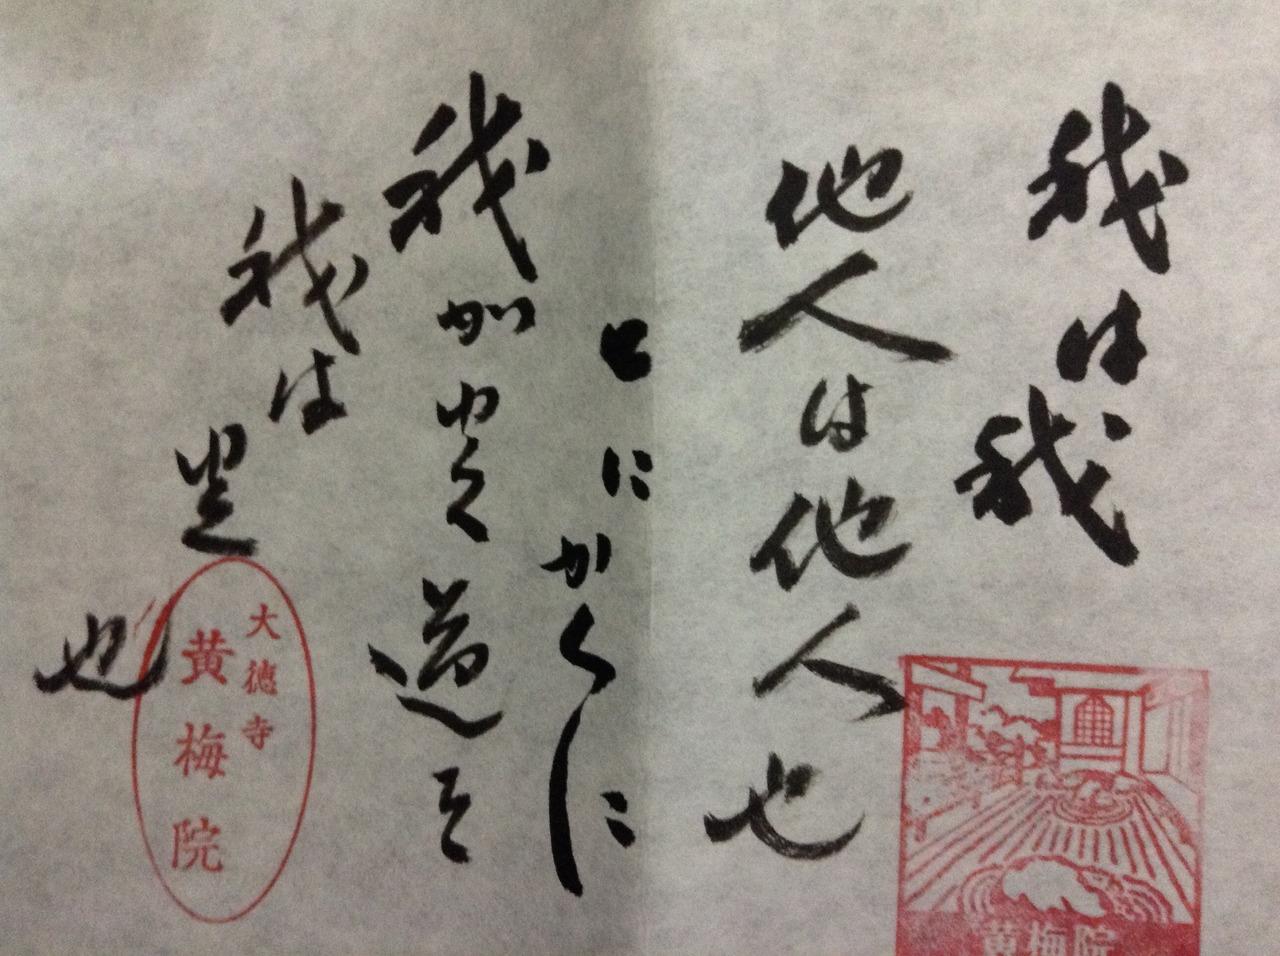 我は我
他人は他人也
とにかくに
我が歩く道を
我は歩也
大徳寺
黄梅院
黄梅院